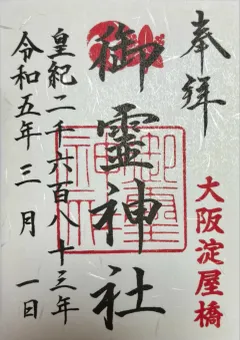 奉拝
大阪淀屋橋
御霊神社
皇紀二千六百八十三年
令和五年三月一日